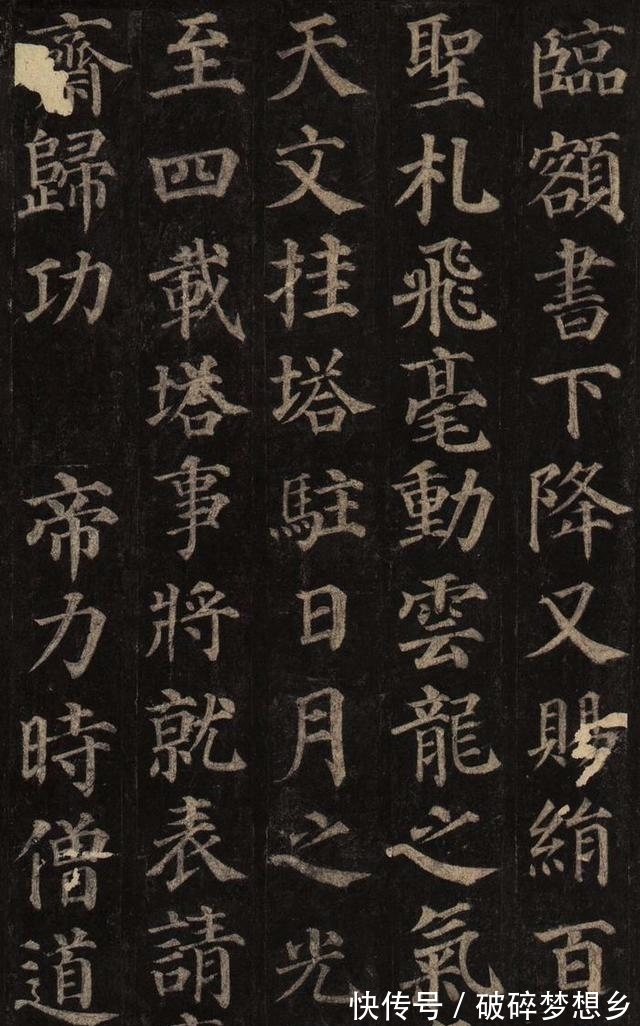 臨額書下降又賜絹百
聖札飛毫動雲龍之氣
天文挂塔駐日月之光
至四載塔事將就表請
齋歸功 帝力時僧道
快传号 / 破碎梦想乡